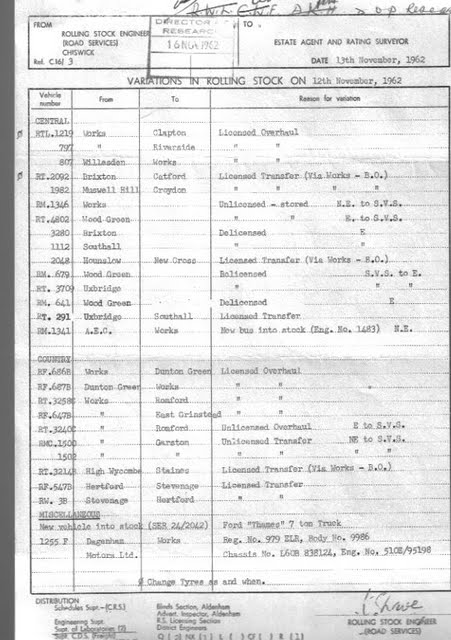 FROM
ROLLING STOCK ENGINEER
(ROAD SERVICES)
CHISWICK
Ref. C16/ 3
DIRECTOR
RESEARCH
16 NOV 1962
TO
ESTATE AGENT AND RATING SURVEYOR
DATE 13th November, 1962
VARIATIONS IN ROLLING STOCK ON 12th November, 1962
Vehicle number From To Reason for variation
CENTRAL
Ø RTL.1219 Works Clapton Licensed Overhaul
797 " Riverside " "
807 Willesden Works " "
Ø RT.2092 Brixton Catford Licensed Transfer (Via Works - B.O.)
1982 Muswell Hill Croydon " " " "
RM.1346 Works Unlicensed - stored N.E. to S.V.S.
RT.4802 Wood Green " " E. to S.V.S.
3280 Brixton Delicensed E
1112 Southall " "
2048 Hounslow New Cross Licensed Transfer (Via Works - B.O.)
RM. 679 Wood Green Relicensed S.V.S. to E.
RT. 3709 Uxbridge " " " "
RM. 641 Wood Green Delicensed E
RT. 291 Uxbridge Southall Licensed Transfer
RM.1341 A.E.C. Works New bus into stock (Eng. No. 1483) N.E.
COUNTRY
RF.686B Works Dunton Green Licensed Overhaul
RF.687B Dunton Green Works " "
RT.3258 Works Romford " "
RF.647B " East Grinstead " "
RT.3240 " Romford Unlicensed Overhaul E to S.V.S.
RMC.1500 " Garston Unlicensed Transfer NE to S.V.S.
1502 " " " " "
RT.3214 High Wycombe Staines Licensed Transfer (Via Works - B.O.)
RF.547B Hertford Stevenage Licensed Transfer
RW. 3B Stevenage Hertford " "
MISCELLANEOUS
New vehicle into stock (SER 24/2042) Ford "Thames" 7 ton Truck
1255 F Dagenham Works Reg. No. 979 ELR, Body No. 9986
Motors Ltd. Chassis No. L60B 838124, Eng. No. 510E/95198
Ø Change Tyres as and when.
DISTRIBUTION
Schedules Supt.-(C.R.S.)
Engineering Supt.
Supt. of Laboratories (2)
Supt. C.D.S. (Freight)
Blinds Section, Aldenham
Advert. Inspector, Aldenham
R.S. Licensing Section
District Engineers
ROLLING STOCK ENGINEER
(ROAD SERVICES)